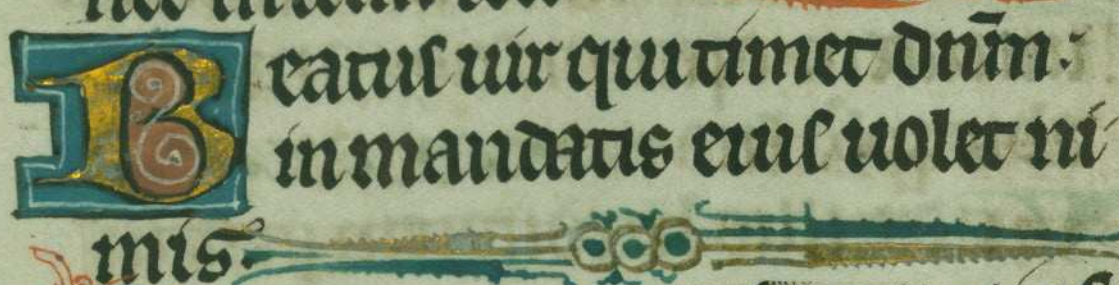 Beatus uir qui timet dnm̄:
in mandatis eius uolet ni
mis.